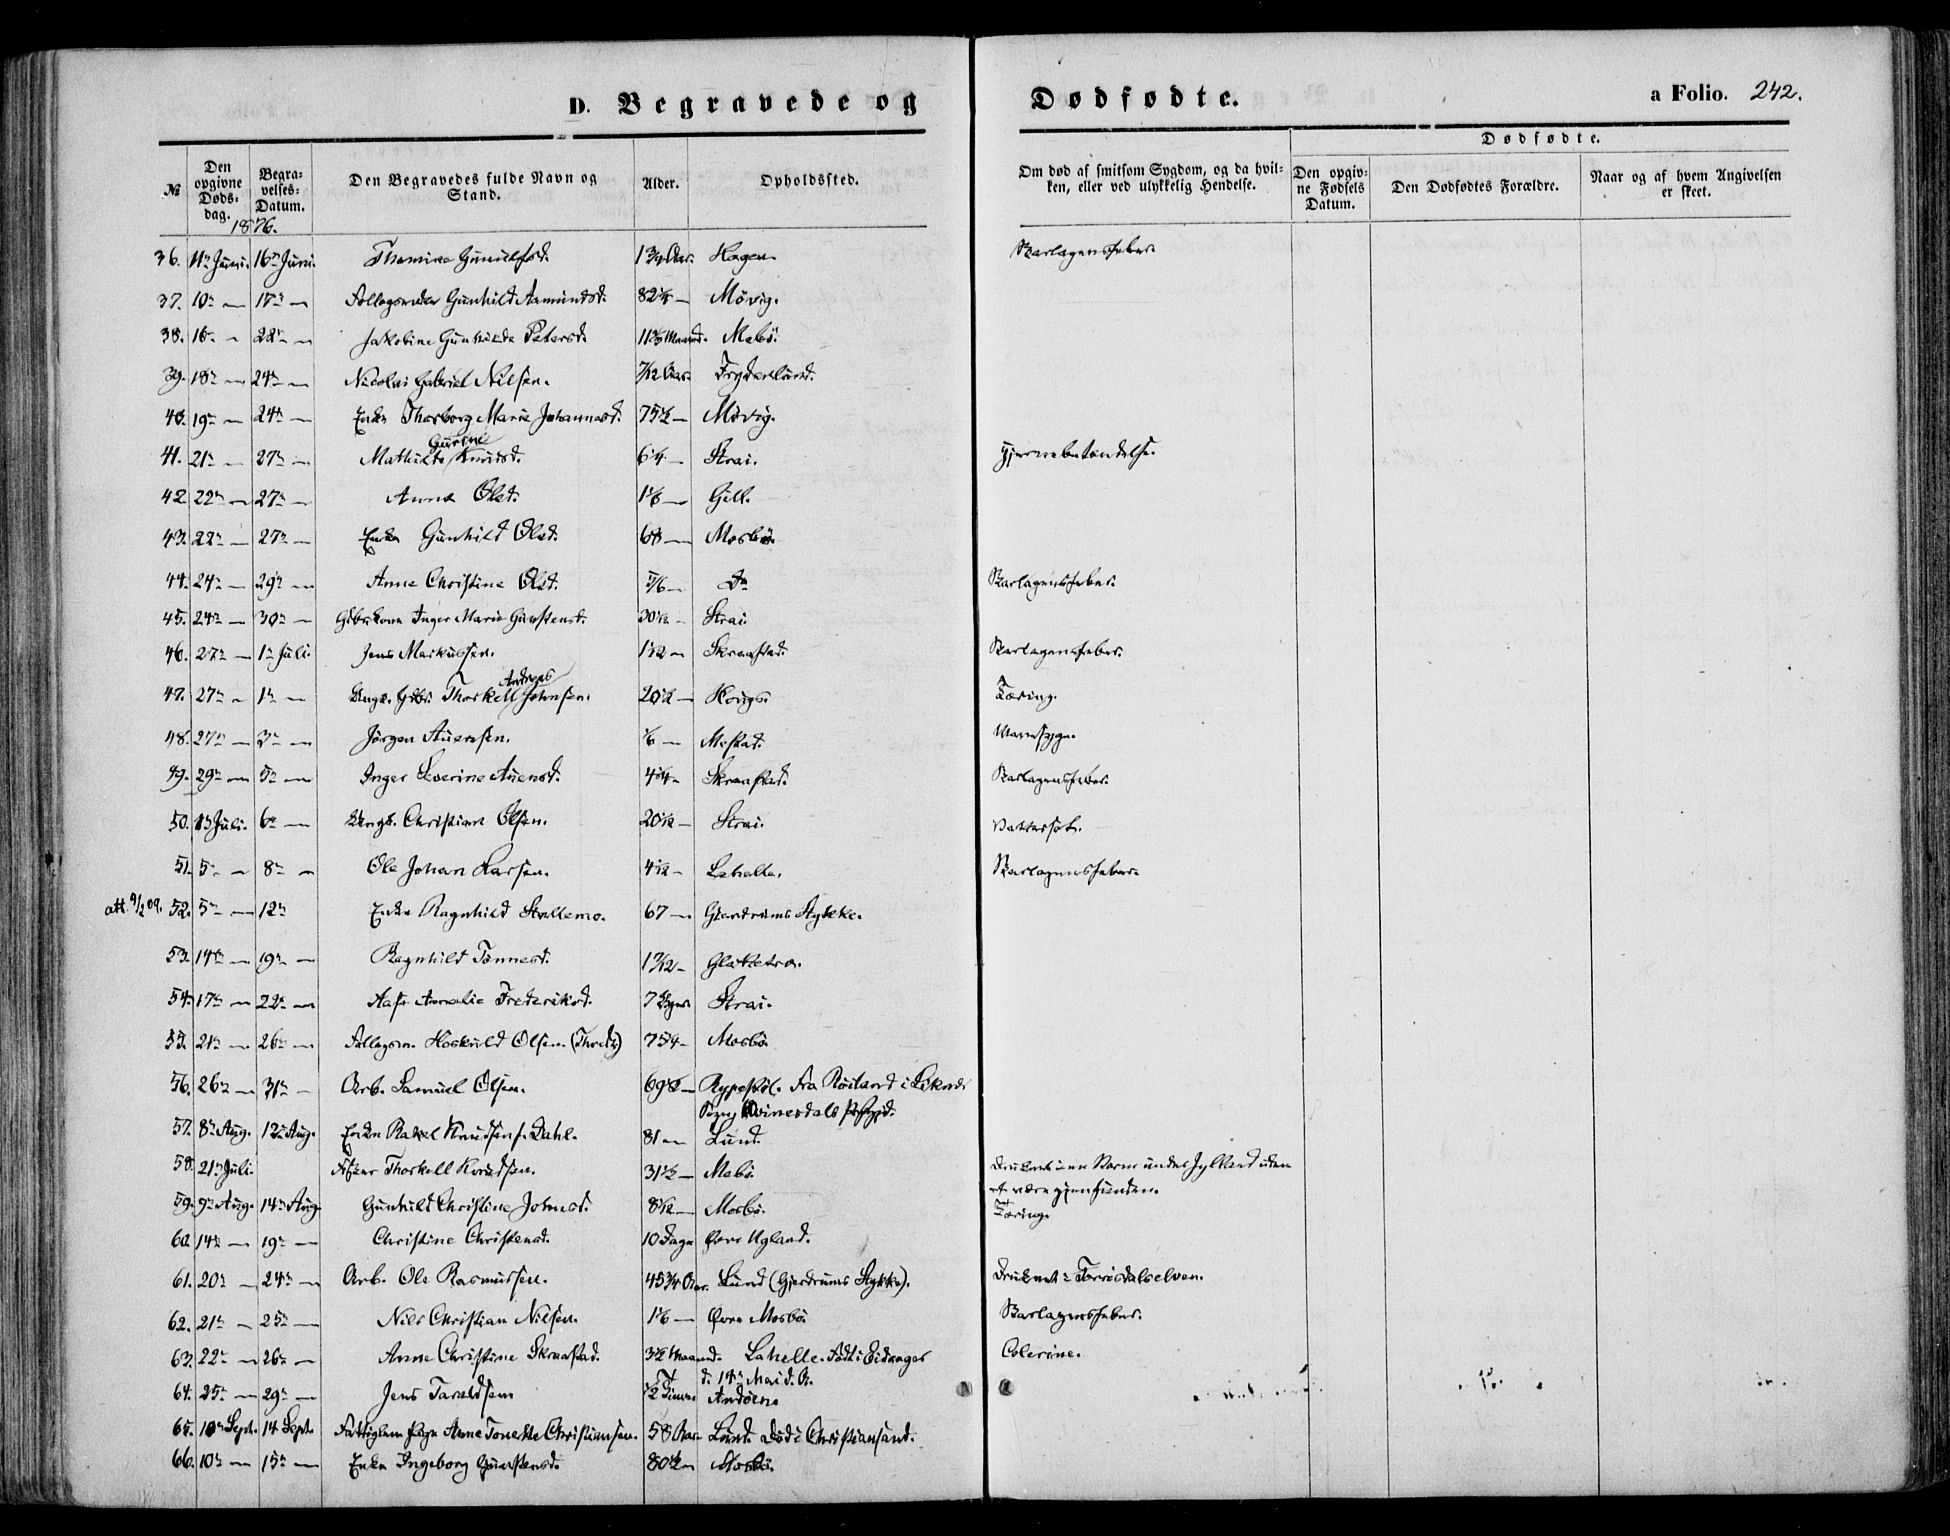 D. Begravede og Dødfødte. a Folio. 242.
№ Den opgivne Døds-dag. Begra-velses-Datum. Den Begravedes fulde Navn og Stand. Alder. Opholdssted. Om død af smitsom Sygdom, og da hvil-ken, eller ved ulykkelig Hendelse. Dødfødte. Den opgiv-ne Fødsels Datum. Den Dødfødtes Forældre. Naar og af hvem Angivelsen er skeet.
1876.
36. 11te Juni. 16de Juni. Thomine Gunulfsd. 1¾ Aar. Hagen. Skarlagensfeber.
37. 10de — 17de — Gunhild Aamundsd. 82¼ — Mövig.
38. 16de — 22de — Jakobine Gunhilde Petersd. Mebö.
39. 18de — 24de — Nicolai Gabriel Nilsen. 7/12 Aar. Frydenlund.
40. 19de — 24de — Enke Thorborg Marie Johannesd. 75½ — Mövig.
41. 21de — 27de — Mathilde Gurine Knudsd. 6¼ — Strai. Hjernebetændelse.
42. 22de — 27de — Anna Olsd. 1 1/6 — Gill.
43. 22de — 27de — Enke Gunhild Olsd. 68 — Mosbö.
44. 24de — 29de — Anne Christine Olsd. 5/6 — Do Skarlagensfeber.
45. 24de — 30te — Gbrkone Inger Marie Gunstensd. Strai.
46. 27de — 1ste Juli. Jens Markussen. Skraastad. Skarlagensfeber.
47. 27de — 1ste — Ungk. Thorkell Andreas Johnsen. 20½ — Tæring.
48. 27de — 3de — Jörgen Auensen. 1/6 — Mestad.
49. 29de — 5te — Inger Severine Auensd. 4¼ — Skraastad. Skarlagensfeber.
50. Juli. 6te — Ungk. Christian Olsen. Strai. Vattersot.
51. 5te — 8de — Ole Johan Larsen. Lahelle. Skarlagensfeber.
att. 9/2 09. 52. 5te — 12te Enke Ragnhild Stallemo. 67 — Gjerdrums Stykke.
53. 14de — 19de — Ragnhild Tönnesd. 1 7/12 —
54. 17de — 22de — Aase Amalie Frederiksd. 7 Uger. Strai.
55. 21de — 26de — Hoskuld Olsen. 75¼ — Mosbö.
56. 26de — 31te — Arb. Samuel Olsen. 69½ — Rypestöl. Fra Röiland i
Sogn Qvinesdals
57. 8de Aug. 12te Aug. Enke Rakel Knudsen f. Dahl. 81 — Lund.
58. 21de Juli. Fisker Thorkell Knudsen. 31½ — Mebö. Druknet i en Storm under Jylland uden
at være gjenfunden.
59. 9de Aug. 14de Aug. Gunhild Christine Johnsd. Mosbö. Tæring.
60. 14de — 19de — Christine Christensd. 10 Dage Øvre Ugland.
61. 20de — 24de — Arb. Ole Rasmussen. 45¾ Aar. Lund (Gjerdrums Stykke). Druknet i Torrisdalselven.
62. 21de — 25de — Nils Christian Nilsen. 1 1/6 — Øvre Mosbö. Skarlagensfeber.
63. 22de — 26de — Anne Christine Skraastad. 3½ Maaned. Lahelle. Född i Eidanger
d. 14de Mai d. A. Colerine.
64. 25de — 29de — Jens Taraldsen ½ Time Andöen.
65. 10de Sept. 14 Sept. Fattiglem Anne Tonette Christiansen. 58 Aar Lund. Död i Christiansand.
66. 10de — 15de — Enke Ingeborg Gunstensd. 80½ — Mosbö.